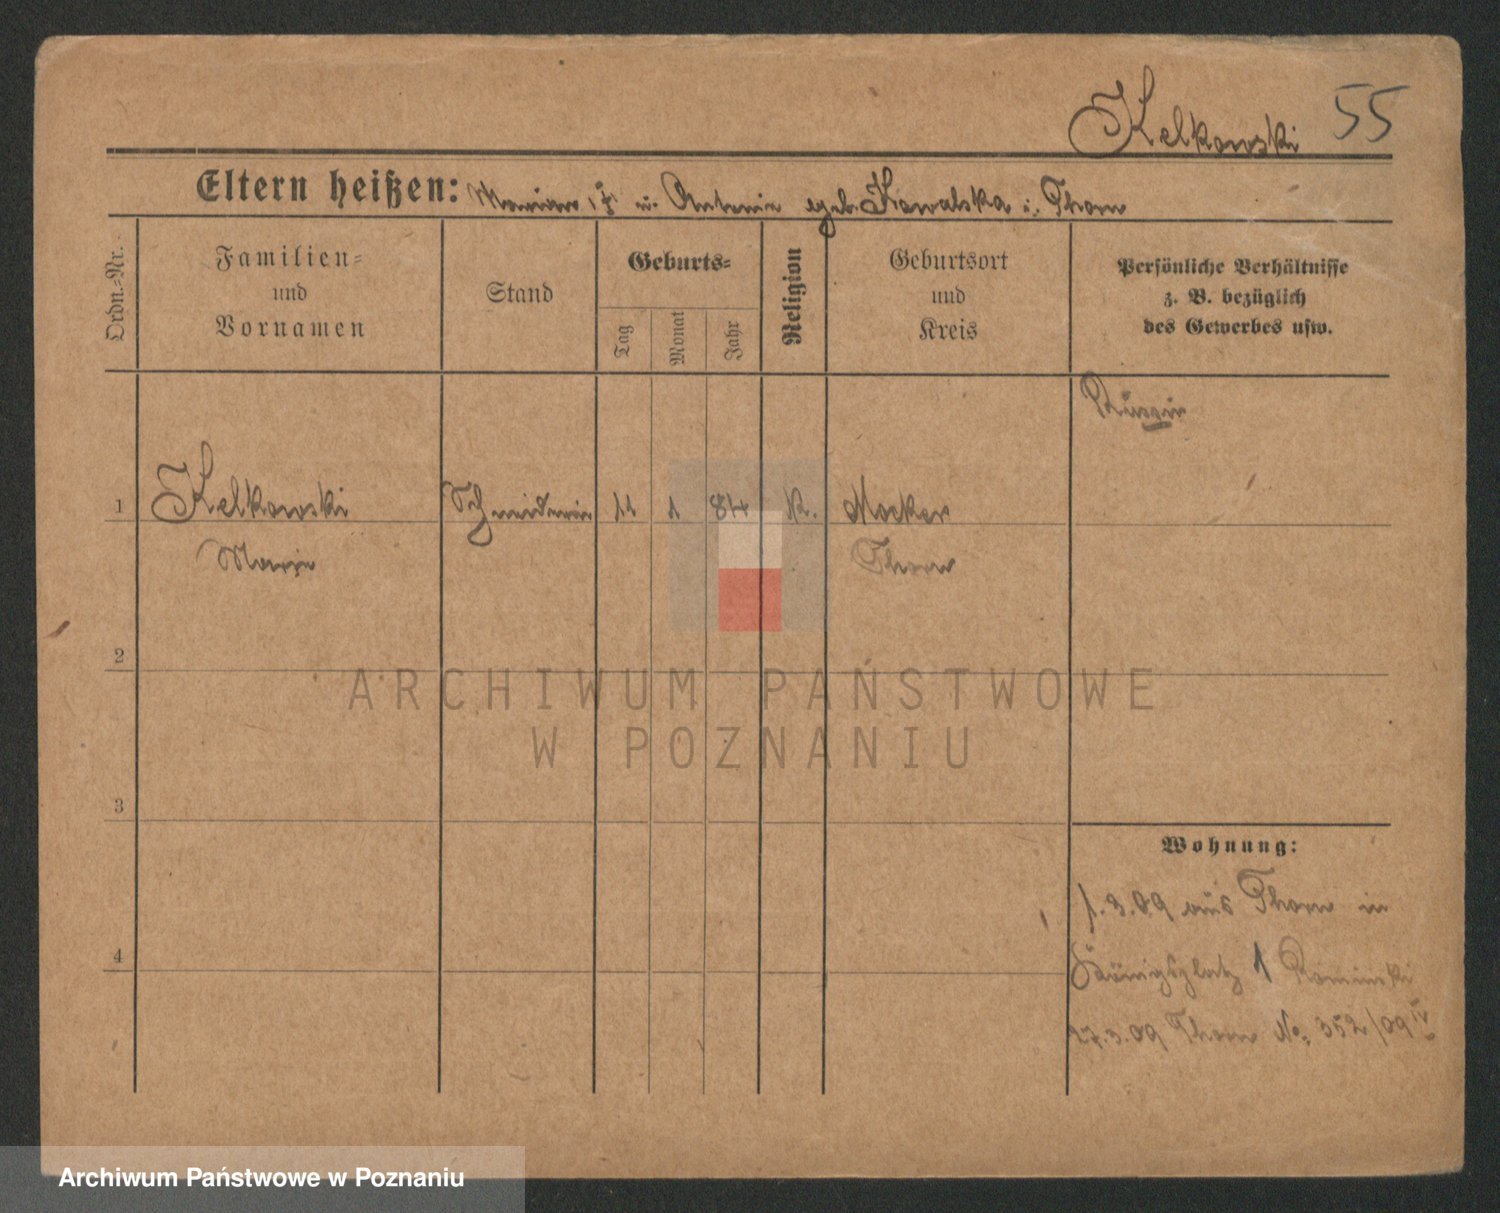 Kelkowski 55
Eltern heißen: Marian † u. Antonie geb. Kowalska i. Thorn
Ordn.-Nr.
Familien-
und
Vornamen
Stand
Geburts-
Tag
Monat
Jahr
Religion
Geburtsort
und
Kreis
Persönliche Verhältnisse
z. B. bezüglich
des Gewerbes usw.
Russin
1 Kelkowski Schneiderin 11 1 84 K. Mocker
Marie Thorn
2
ARCHIWUM PAŃSTWOWE
W POZNANIU
3
Wohnung:
1.3.09 aus Thorn in
4 Königsplatz 1 Rominski
27.3.09 Thorn No. 352/09 IV
Archiwum Państwowe w Poznaniu